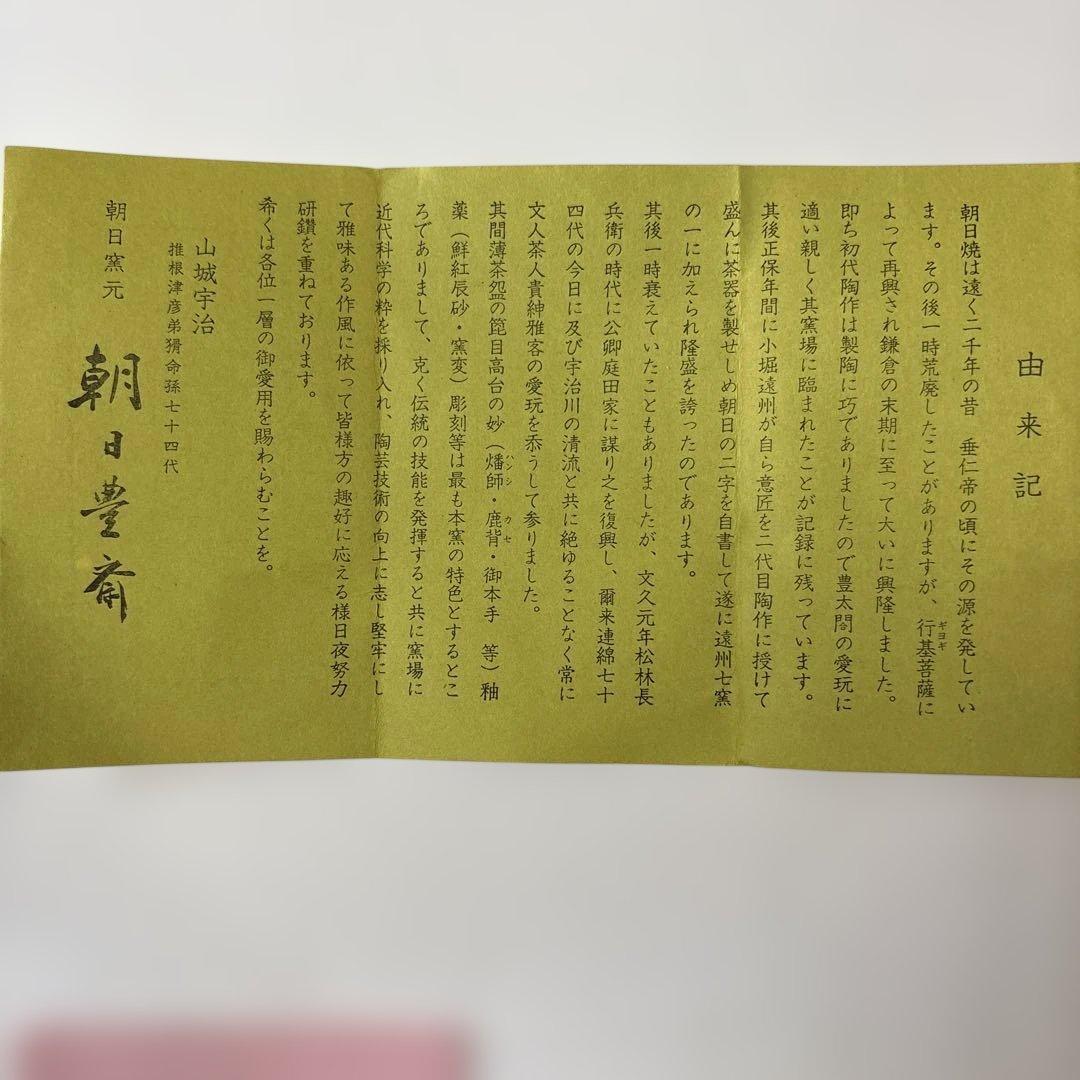 由来記
朝日焼は遠く二千年の昔　垂仁帝の頃にその源を発してい
ます。その後一時荒廃したことがありますが、行基菩薩に
ギヨギ
よって再興され鎌倉の末期に至って大いに興隆しました。
即ち初代陶作は製陶に巧でありましたので豊太閤の愛玩に
適い親しく其窯場に臨まれたことが記録に残っています。
其後正保年間に小堀遠州が自ら意匠を二代目陶作に授けて
盛んに茶器を製せしめ朝日の二字を自書して遂に遠州七窯
の一に加えられ隆盛を誇ったのであります。
其後一時衰えていたこともありましたが、文久元年松林長
兵衛の時代に公卿庭田家に謀り之を復興し、爾来連綿七十
四代の今日に及び宇治川の清流と共に絶ゆることなく常に
文人茶人貴紳雅客の愛玩を忝うして参りました。
其間薄茶盌の箆目高台の妙（燔師・鹿背・御本手　等）釉
ハンシ　カセ
薬（鮮紅辰砂・窯変）彫刻等は最も本窯の特色とするとこ
ろでありまして、克く伝統の技能を発揮すると共に窯場に
近代科学の粋を採り入れ、陶芸技術の向上に志し堅牢にし
て雅味ある作風に依って皆様方の趣好に応える様日夜努力
研鑽を重ねております。
希くは各位一層の御愛用を賜わらむことを。
山城宇治
推根津彦弟猾命孫七十四代
朝日窯元　朝日豊斎